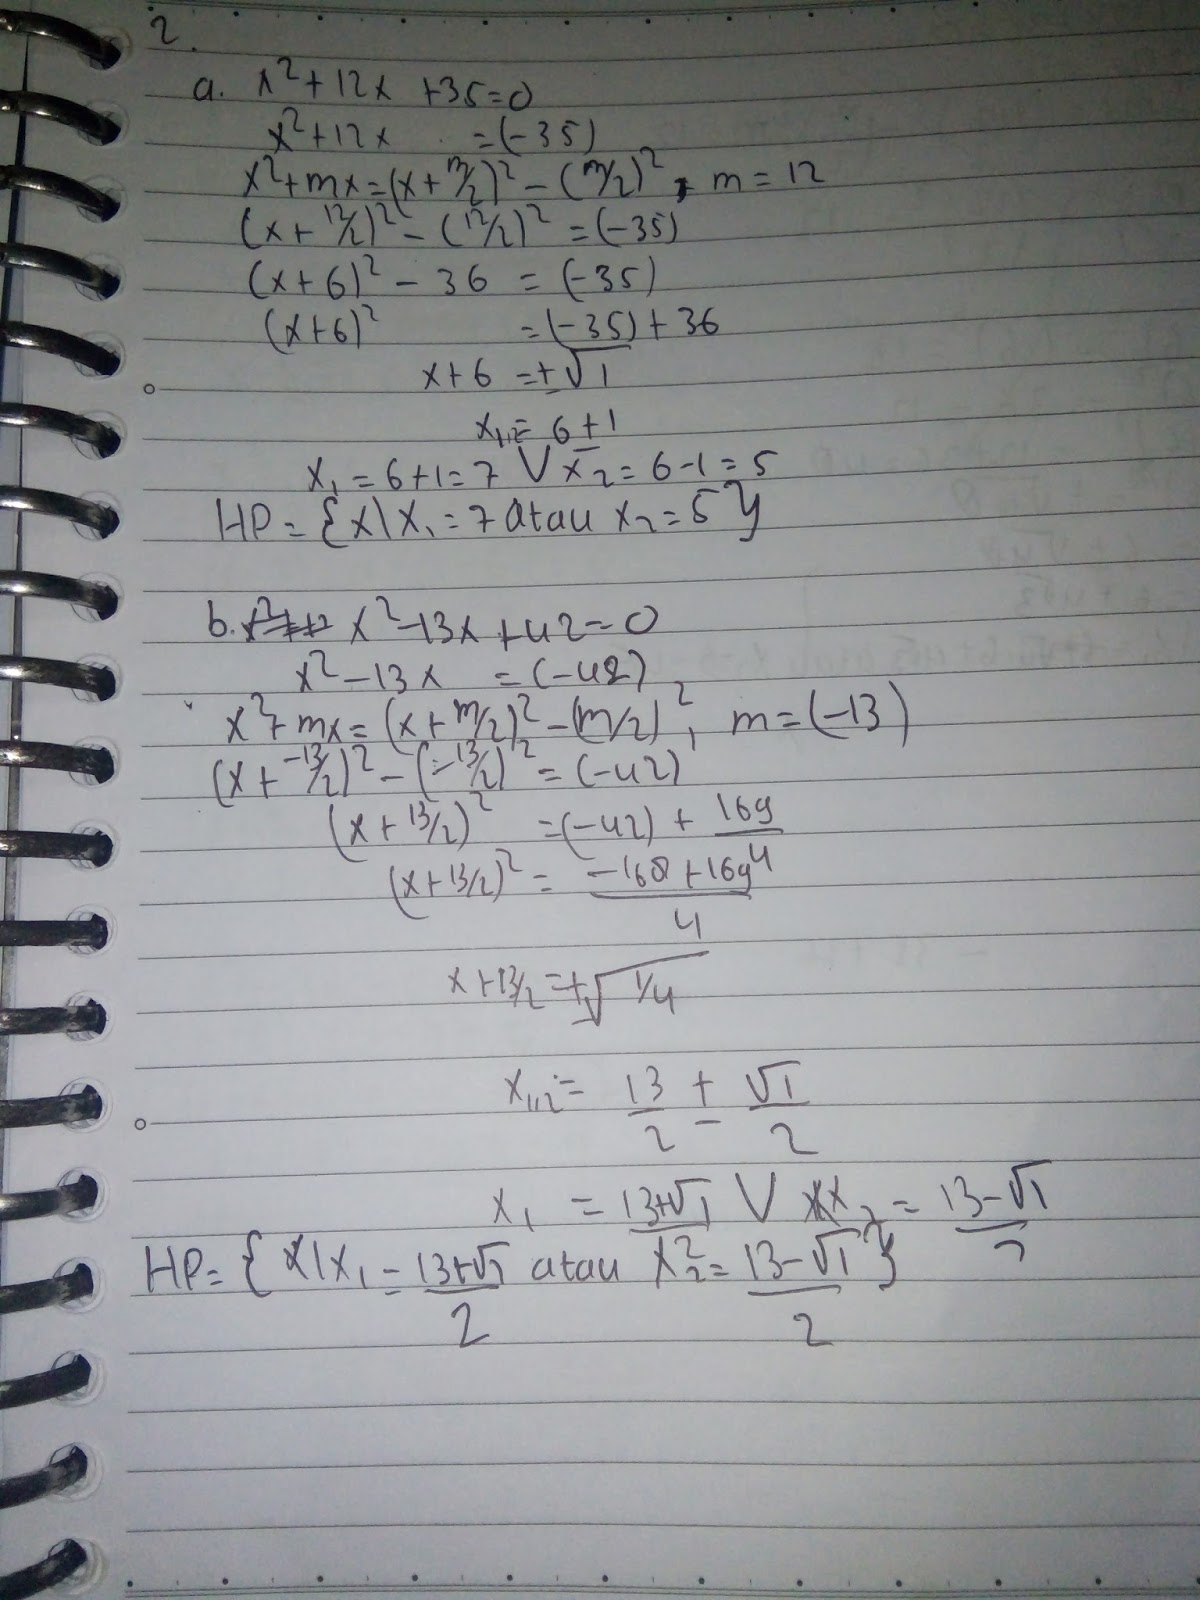 2.
a. x²+12x +35=0
x²+12x =(-35)
x²+mx=(x+m/2)²-(m/2)², m=12
(x+12/2)²-(12/2)²=(-35)
(x+6)²-36 =(-35)
(x+6)² =(-35)+36
x+6 =±√1
x₁,₂= 6±1
x₁=6+1=7 V x₂=6-1=5
HP={x|x₁=7 atau x₂=5}
b. x²-13x+42=0
x²-13x =(-42)
x²+mx=(x+m/2)²-(m/2)², m=(-13)
(x+-13/2)²-(-13/2)²=(-42)
(x+13/2)² =(-42)+169/4
(x+13/2)²= (-168+169)/4
x+13/2=±√1/4
x₁,₂= 13/2 ± √1/2
x₁ = (13+√1)/2 V x₂ = (13-√1)/2
HP={x|x₁=(13+√1)/2 atau x₂=(13-√1)/2}